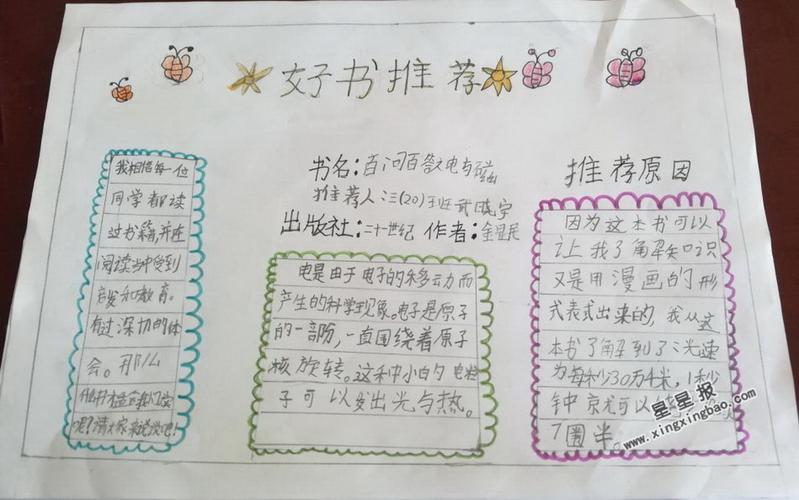 好书推荐
我相信每一位
同学都读
过书籍,并在
阅读当中受到
启发和教育。
有过深切的体
会。那么
什么书
呢?请大家来说说吧!
书名:百问百答电与磁
推荐人:三(20)班
出版社:二十一世纪 作者:金显民
电是由于电子的移动而
产生的科学现象。电子是原子
的一部份,一直围绕着原子
核旋转。这种小的电粒
子可以发出光与热。
推荐原因
因为这本书可以
让我了解知识
又是用漫画的形
式表式出来的,我从这
本书了解到了:光速
为每秒30万千米,1秒
钟就可以
7圈半。
星星报
www.xingxingbao.com